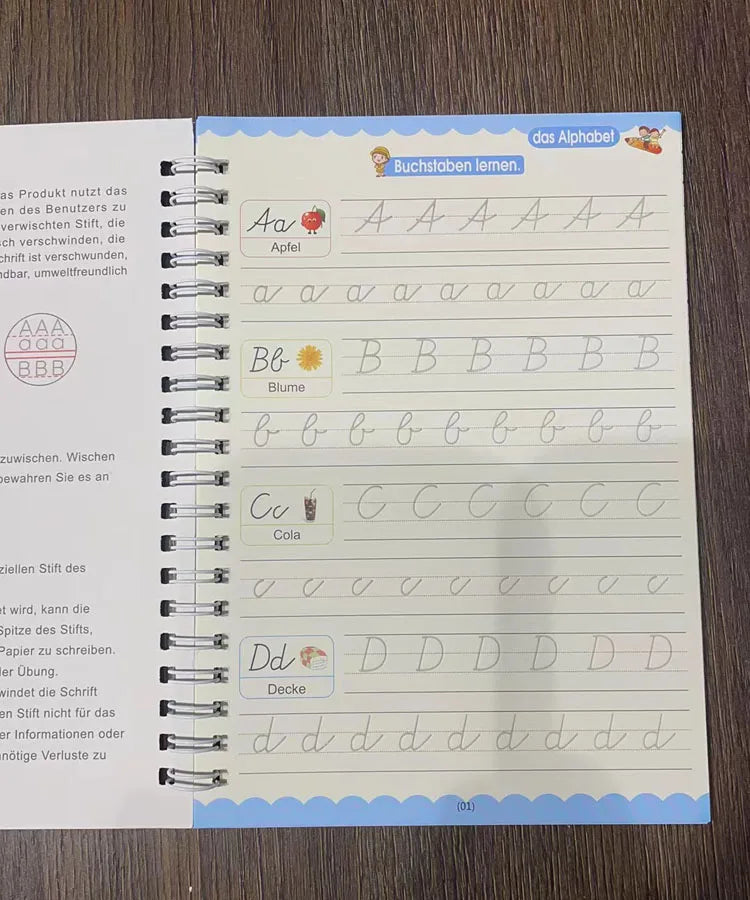 as Produkt nutzt das
en des Benutzers zu
verwischten Stift, die
sch verschwinden, die
chrift ist verschwunden,
ndbar, umweltfreundlich
AAA
aaa
BBB
zuwischen. Wischen
bewahren Sie es an
ziellen Stift des
et wird, kann die
Spitze des Stifts,
Papier zu schreiben.
ler Übung.
windet die Schrift
en Stift nicht für das
er Informationen oder
nnötige Verluste zu
das Alphabet
Buchstaben lernen.
Aa A A A A A A
Apfel
a a a a a a a a a
Bb B B B B B B
Blume
b b b b b b b b b
Cc C C C C C C
Cola
c c c c c c c c c
Dd D D D D D D
Decke
d d d d d d d d d
(01)